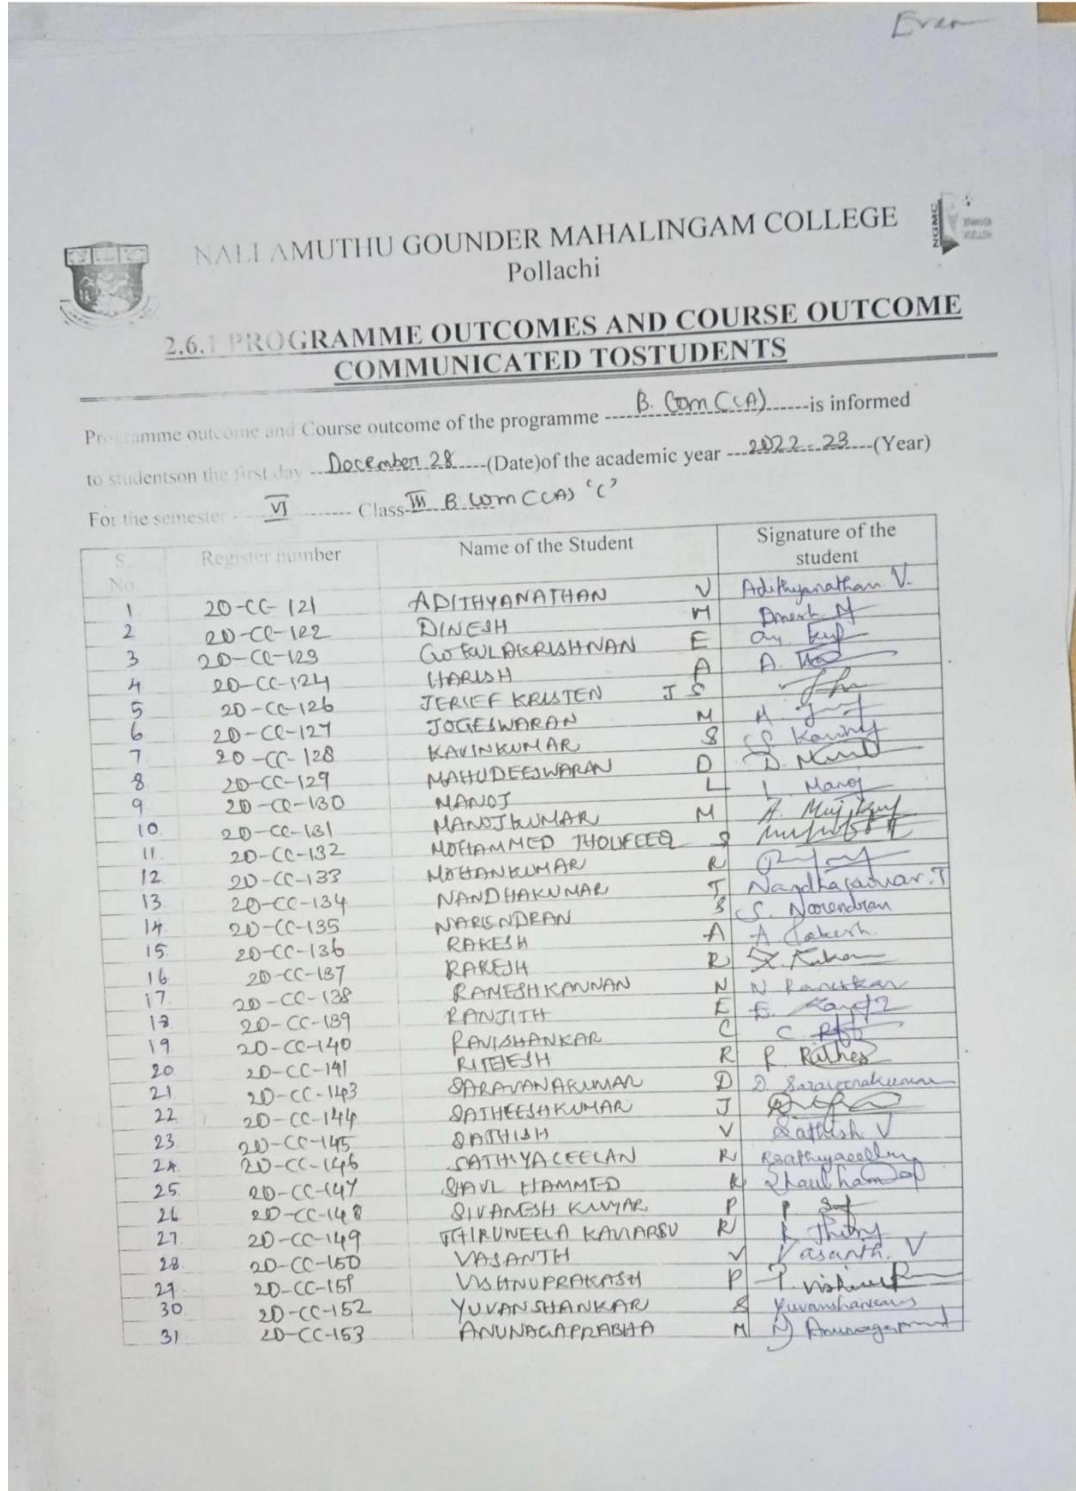 Even
NALLAMUTHU GOUNDER MAHALINGAM COLLEGE
Pollachi
NGMC
2.6.1 PROGRAMME OUTCOMES AND COURSE OUTCOME
COMMUNICATED TOSTUDENTS
Programme outcome and Course outcome of the programme B. Com C(A) is informed
to studentson the first day December 28 (Date)of the academic year 2022-23 (Year)
For the semester VI Class III B.Com C(A) 'C'
S. No Register number Name of the Student Signature of the student
1 20-CC-121 ADITHYANATHAN V Adithyanathan V.
2 20-CC-122 DINESH M Dinesh M
3 20-CC-123 GOKULAKRISHNAN E
4 20-CC-124 HARISH A A.
5 20-CC-126 JERIEF KRISTEN J S
6 20-CC-127 JOGESWARAN M
7 20-CC-128 KAVINKUMAR S
8 20-CC-129 MAHUDEESWARAN D D.
9 20-CC-130 MANOJ L L. Manoj
10 20-CC-131 MANOJKUMAR M
11 20-CC-132 MOHAMMED THOUFEEQ S
12 20-CC-133 MOHANKUMAR R
13 20-CC-134 NANDHAKUMAR T Nandhakumar.T
14 20-CC-135 NARENDRAN S S. Narendran
15 20-CC-136 RAKESH A A Rakesh
16 20-CC-137 RAKESH R
17 20-CC-138 RAMESHKANNAN N N
18 20-CC-139 RANJITH E E.
19 20-CC-140 RAVISHANKAR C C
20 20-CC-141 RITHESH R R Rithes
21 20-CC-143 SARAVANAKUMAR D D. Saravanakumar
22 20-CC-144 SATHEESHKUMAR J
23 20-CC-145 SATHISH V Sathish V
24 20-CC-146 SATHIYACEELAN R
25 20-CC-147 SHAUL HAMMED K Shaulhamed
26 20-CC-148 SIVANESH KUMAR P P
27 20-CC-149 THIRUNEELA KANARSU R
28 20-CC-150 VASANTH V Vasanth. V
29 20-CC-151 VISHNUPRAKASH P
30 20-CC-152 YUVANSHANKAR S Yuvanshankar
31 20-CC-153 ANUNAGAPRABHA M